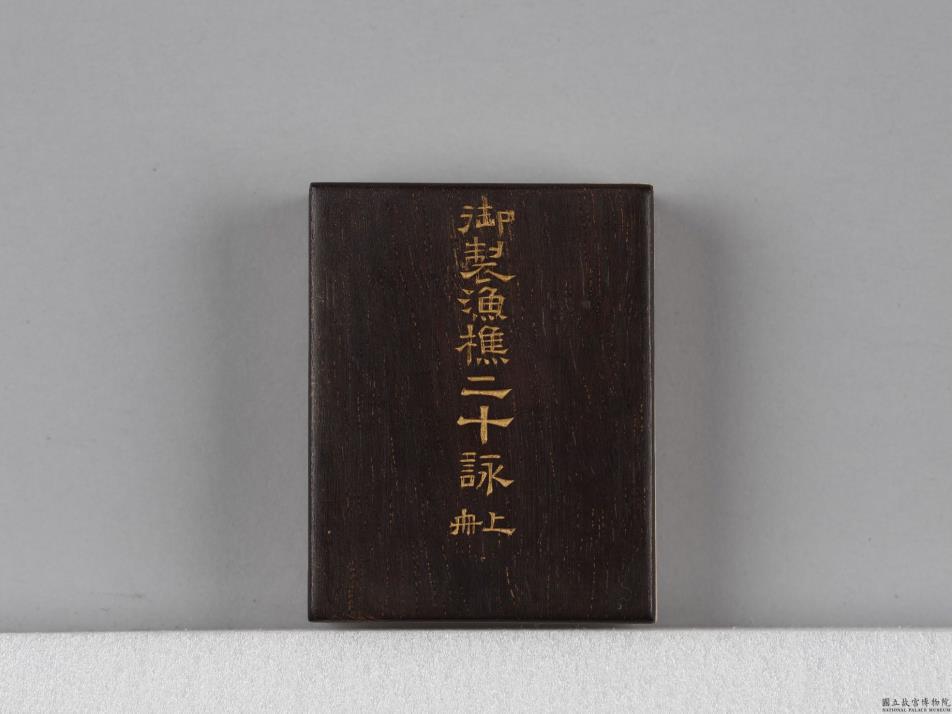 御製漁樵二十詠
上冊
國立故宮博物院
NATIONAL PALACE MUSEUM